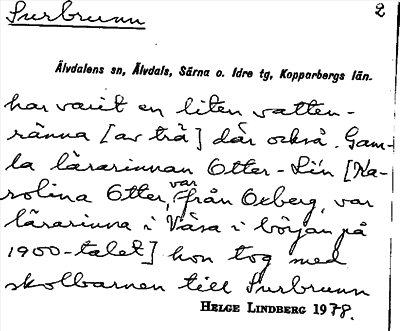 Surbrunn
2
Älvdalens sn, Älvdals, Särna o. Idre tg, Kopparbergs län.
har varit en liten vatten-
ränna [av trä] där också. Gam-
la lärarinnan Otter-Lin [Ka-
rolina Otter, var från Oxberg, var
lärarinna i Våsa i början på
1900-talet] hon tog med
skolbarnen till Surbrunn
HELGE LINDBERG 1978.